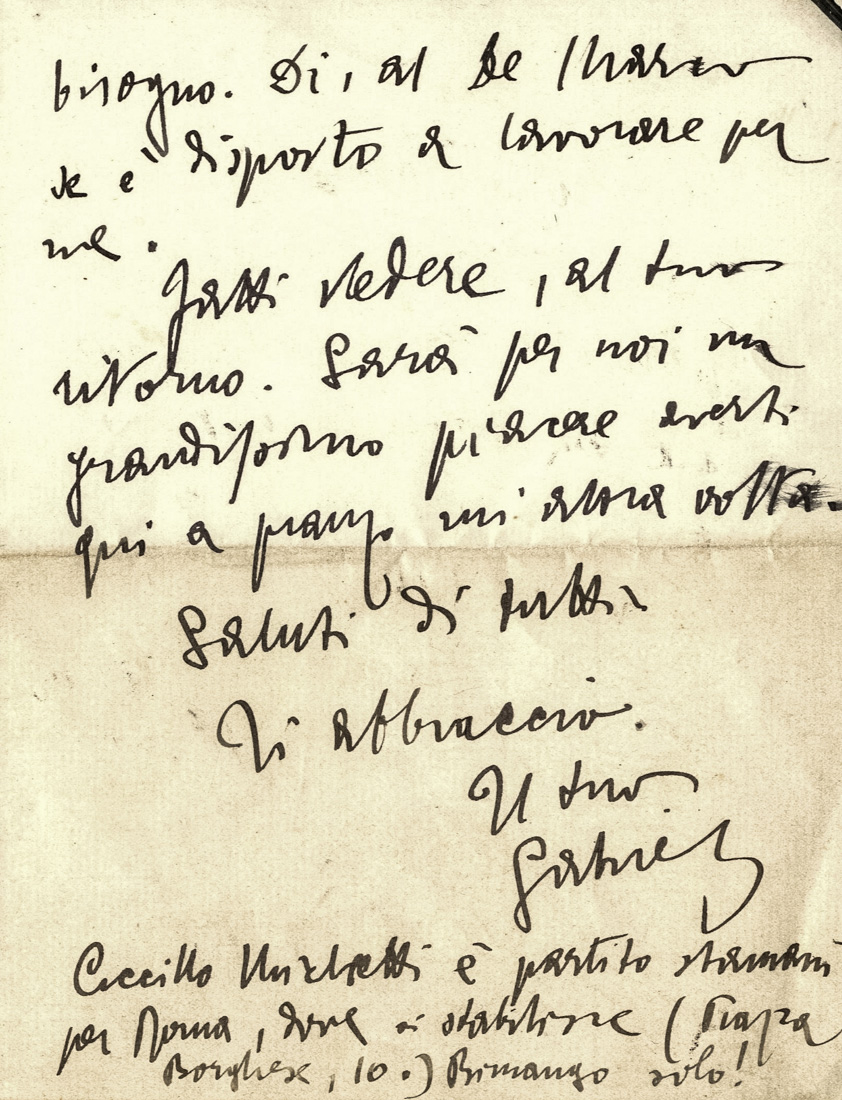 bisogno. Di, al De Marco
se è disposto a lavorare per
me.
Fatti vedere, al tuo
ritorno. Sarà per noi un
grandissimo piacere averti
qui a pranzo un'altra volta.
Saluti di tutti.
Ti abbraccio.
Il tuo
Gabriel
Ciccillo Michetti è partito stamani
per Roma, dove si stabilisce (Piazza
Borghese, 10.) Rimango solo!